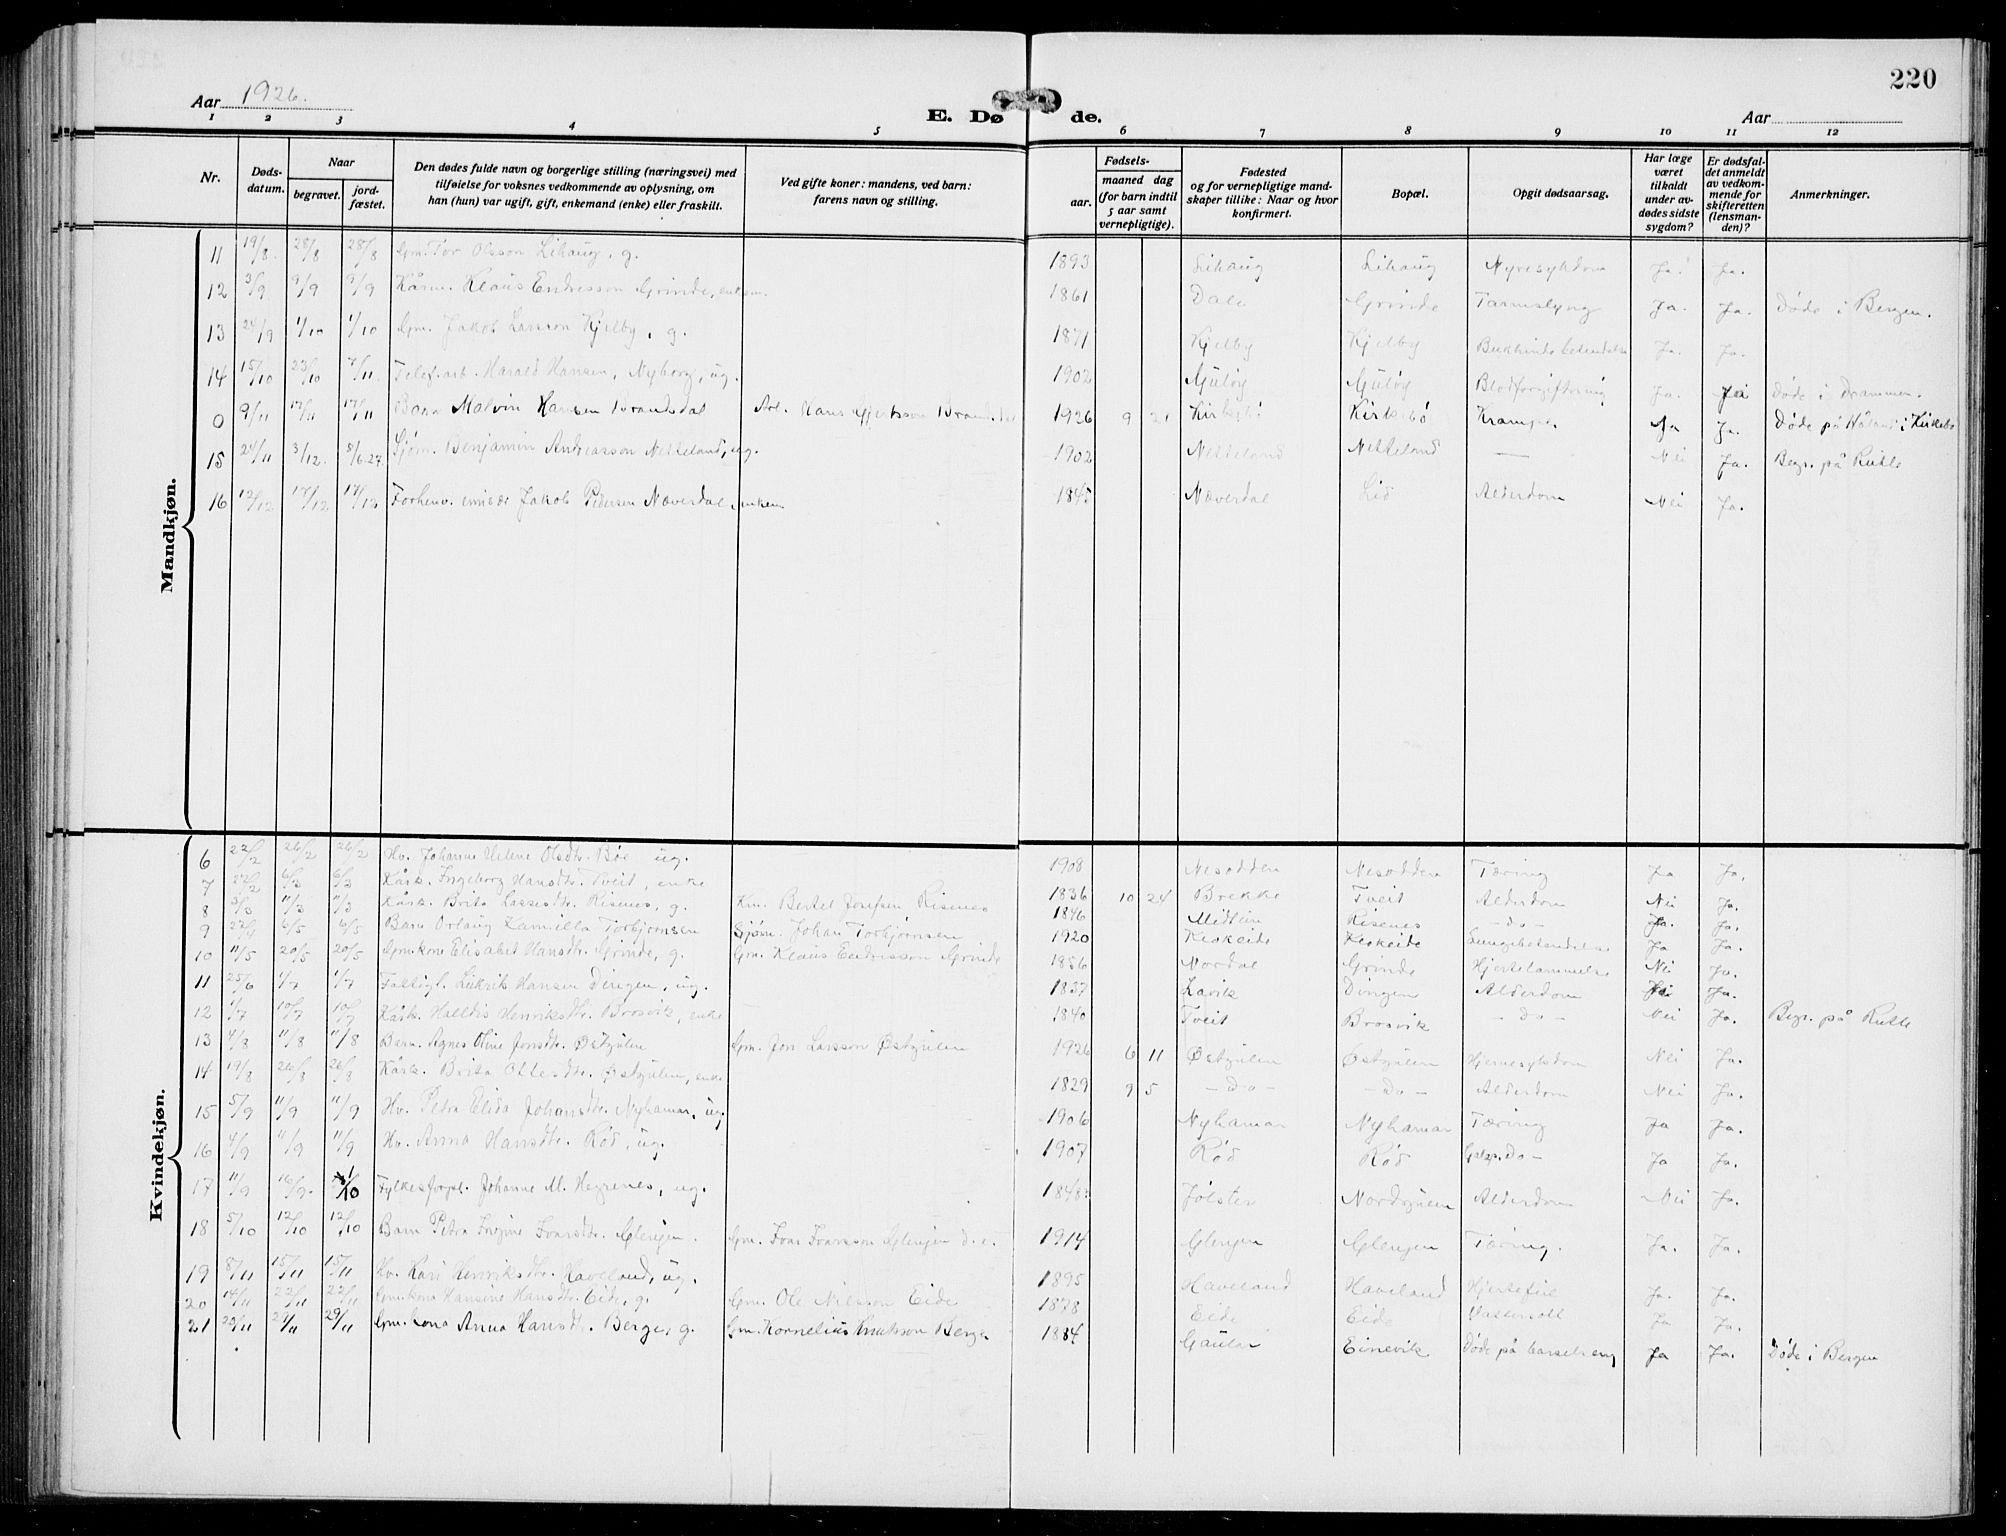 220
Aar 1926.
E. Døde.
Aar
1 2 3 4 5 6 7 8 9 10 11 12
Nr.
Døds-datum.
Naar
begravet.
jord-fæstet.
Den dødes fulde navn og borgerlige stilling (næringsvei) med tilføielse for voksnes vedkommende av oplysning, om han (hun) var ugift, gift, enkemand (enke) eller fraskilt.
Ved gifte koner: mandens, ved barn: farens navn og stilling.
Fødsels-
aar.
maaned dag
(for barn indtil 5 aar samt vernepligtige).
Fødested og for vernepligtige mand-skaper tillike: Naar og hvor konfirmert.
Bopæl.
Opgit dødsaarsag.
Har læge været tilkaldt under av-dødes sidste sygdom?
Er dødsfal-det anmeldt av vedkom-mende for skifteretten (lensman-den)?
Anmerkninger.
Mandkjøn.
11 19/8 28/8 28/8 Gm. Tor Olsson Lihaug, g. 1893 Lihaug Lihaug Nyresykdom Ja. Ja.
12 3/9 9/9 9/9 Kårm. Klaus Endresson Grinde, enkem. 1861 Dale Grinde Tarmslyng Ja. Ja. Døde i Bergen.
13 24/9 1/10 1/10 Gm. Jakob Larsson Kjelby, g. 1871 Kjelby Kjelby Ja. Ja.
14 15/10 23/10 7/11 Telef.arb. Harald Hansen, Nyborg, ug. 1902 Blodforgiftning Ja. Ja Døde i Drammen.
0 9/11 17/11 17/11 Barn Malvin Hansen Brandsdal Arb. Hans 1926 9 21 Kirkebø Kirkebø Krampe Ja Ja. Døde på i Kirkebø
15 24/11 3/12. 5/6.27. Sjøm. Benjamin Andreasson Netteland, ug. 1902 Netteland Netteland — Nei Ja. Begr. på Rutle
16 12/12 17/12 17/12 Forhenv. Jakob Pedersen Næverdal, enkem 1845 Næverdal Lid Alderdom Nei Ja.
Kvindekjøn.
6 22/2 26/2 26/2 Hv. Johanne Helene Olsdtr. Bøe ug. 1908 Nesodden Nesodden Tæring Ja Ja.
7 22/2 6/3 6/3 Kårk. Ingeborg Hansdtr. Tveit, enke 1836 10 24 Brekke Tveit Alderdom Nei Ja.
8 3/3 11/3 11/3 Kårk. Brita Lassesdtr. Risenes, g. Km. Bertel Josefsen Risenes 1846 Risenes - do - Ja. Ja.
9 6/5 6/5 Barn Orlaug Kamilla Torbjørnsen Sjøm. Johan Torbjørnsen 1920 Keskeide Keskeide Lungebetændelse Ja Ja.
10 11/5 20/5 20/5 Gm.kone Elisabet Hansdtr. Grinde, g. Gm. Klaus Endresson Grinde 1856 Nordal Grinde Hjertelammelse Nei Ja.
11 25/6 1/7 1/7 Hansen Dingen, ug. 1837 Lavik Dingen Alderdom Ja.
12 1/7 10/7 10/7 Kårk. Halldis Henriksdtr. Brosvik, enke 1840 Tveit Brosvik - Do - Nei Ja. Begr. på Rutle
13 4/8 11/8 11/8 Barn. Agnes Oline Jonsdtr. Østgulen Gm. Jon Larsson Østgulen 1926 6 11 Østgulen Østgulen Hjernesykdom Nei Ja.
14 19/8 26/8 26/8 Kårk. Brita Ottesdtr. Østgulen, enke 1829 9 5 - Do - - Do - Alderdom Nei Ja.
15 5/9 11/9 11/9 Hv. Petra Elida Johansdtr. Nyhamar, ug. 1906 Nyhamar Nyhamar Tæring Ja Ja.
16 4/9 11/9 11/9 Hv. Anna Hansdtr. Rød, ug. 1907 Rød Rød Do - Ja Ja.
17 11/9 16/9. 1/10 Fylkesforpl. Johanne M. Heyrenes, ug. 1848 Jølster Nordgulen Alderdom Nei Ja.
18 5/10 12/10 12/10 Barn Petra Ivarsdtr. Glenjen. Gm. Ivar Ivarsson Glenjen d. e. 1914 Glenjen Glenjen Tæring. Ja. Ja.
19 8/11 15/11 15/11 Hv. Kari Henriksdtr. Haveland, ug. 1895 Haveland Haveland Hjertefeil Ja. Ja.
20 14/11 22/11 22/11 Gm.kona Hansine Hansdtr. Eide, g. Gm. Ole Nilsson Eide 1878 Eide Eide Vattersott Ja Ja.
21 22/11 29/11 29/11 Gm. kona Anna Hansdtr. Berge, g. Gm. Kornelius Knutsson Berge 1884 Gaular Einevik Døde på barselseng Ja Ja. Døde i Bergen